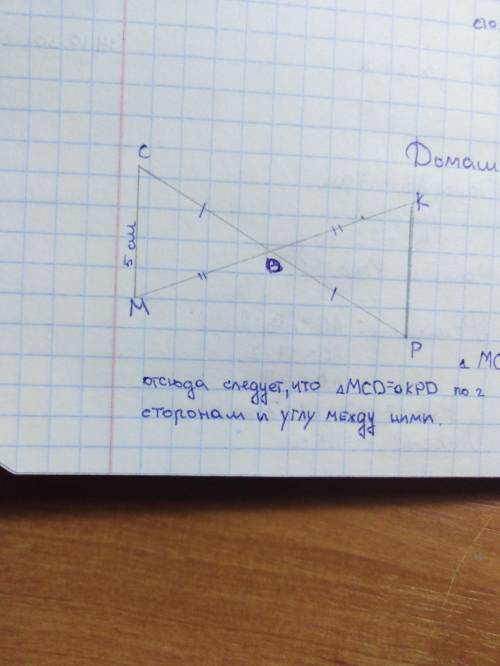 Домаш
C
K
5 см
D
M
P
MC
отсюда следует, что △MCD=△KPD по 2
сторонам и углу между ними.